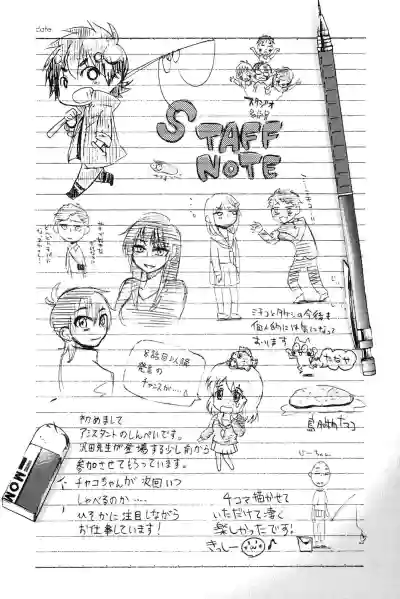 date
スタジオ
STAFF
NOTE
ミチコとタケシの今後も
個人的には気になって
おります
たなや
8話目以降
発言の
チャンスが……
初めまして
アシスタントのしんぺいです。
沢田先生が登場する少し前から
参加させてもらっています。
チャコちゃんが次回いつ
しゃべるのか……
ひそかに注目しながら
お仕事しています!
4コマ描かせて
いただけて凄く
楽しかったです!
きっしー
MOM